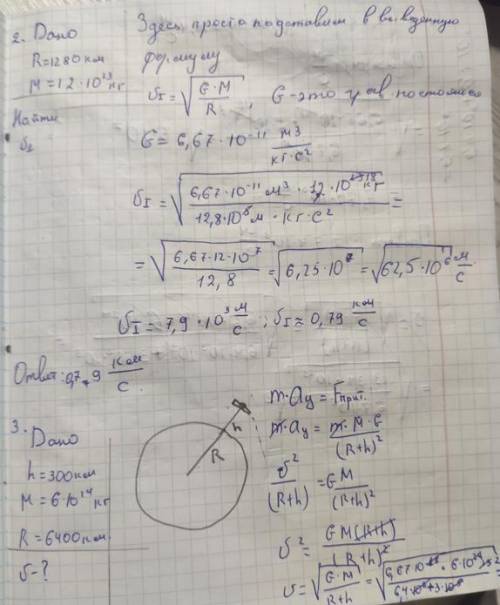 2. Дано
Здесь просто подставим в выведенную
формулу
R=1280 км
M=12·10²³ кг
Найти
υ_I = √(G·M / R), G-это грав. постоянная
G = 6,67·10⁻¹¹ м³ / кг·с²
υ_I = √(6,67·10⁻¹¹ м³ · 12·10 кг / 12,8·10⁵ м · кг·с²) =
= √(6,67·12·10⁷ / 12,8) = √(6,25·10⁷) = √(62,5·10⁶) м/с
υ_I = 7,9·10³ м/с ; υ_I = 0,79 км/с
Ответ: 7,9 км/с.
3. Дано
h=300 км
M=6·10²⁴ кг
R=6400 км.
υ-?
h
R
m·aу = Fприт.
m·aу = m·M·G / (R+h)²
υ² / (R+h) = GM / (R+h)²
υ² = GM(R+h) / (R+h)²
υ = √(G·M / R+h) = √(6,67·10 · 6·10²⁴ / 6,4·10⁶+3·10⁵) =